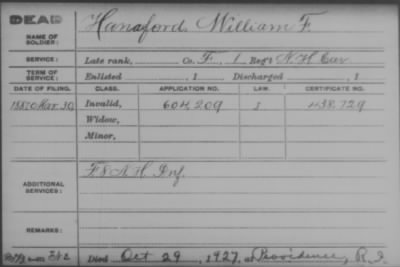 DEAD
NAME OF SOLDIER: Hanaford, William F.
SERVICE: Late rank, Co. F, 1 Reg't N.H. Cav.
TERM OF SERVICE: Enlisted , 1 Discharged , 1
DATE OF FILING. CLASS. APPLICATION NO. LAW. CERTIFICATE NO.
1887 Mar. 30 Invalid, 604,209 438.729
Widow,
Minor,
ADDITIONAL SERVICES: F 8 N.H. Inf.
REMARKS:
Died Oct 29, 1927, at Providence, R.I.